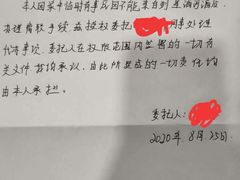 本人因家中临时有事不能亲自到是酒消店
办理离职手续,兹授权委托 同事处理
代办事项。委托人在权限范围内签署的一切有
关文件,我均承认,由此所造成的一切责任均
由本人承担。
委托人:
2020年8月25日